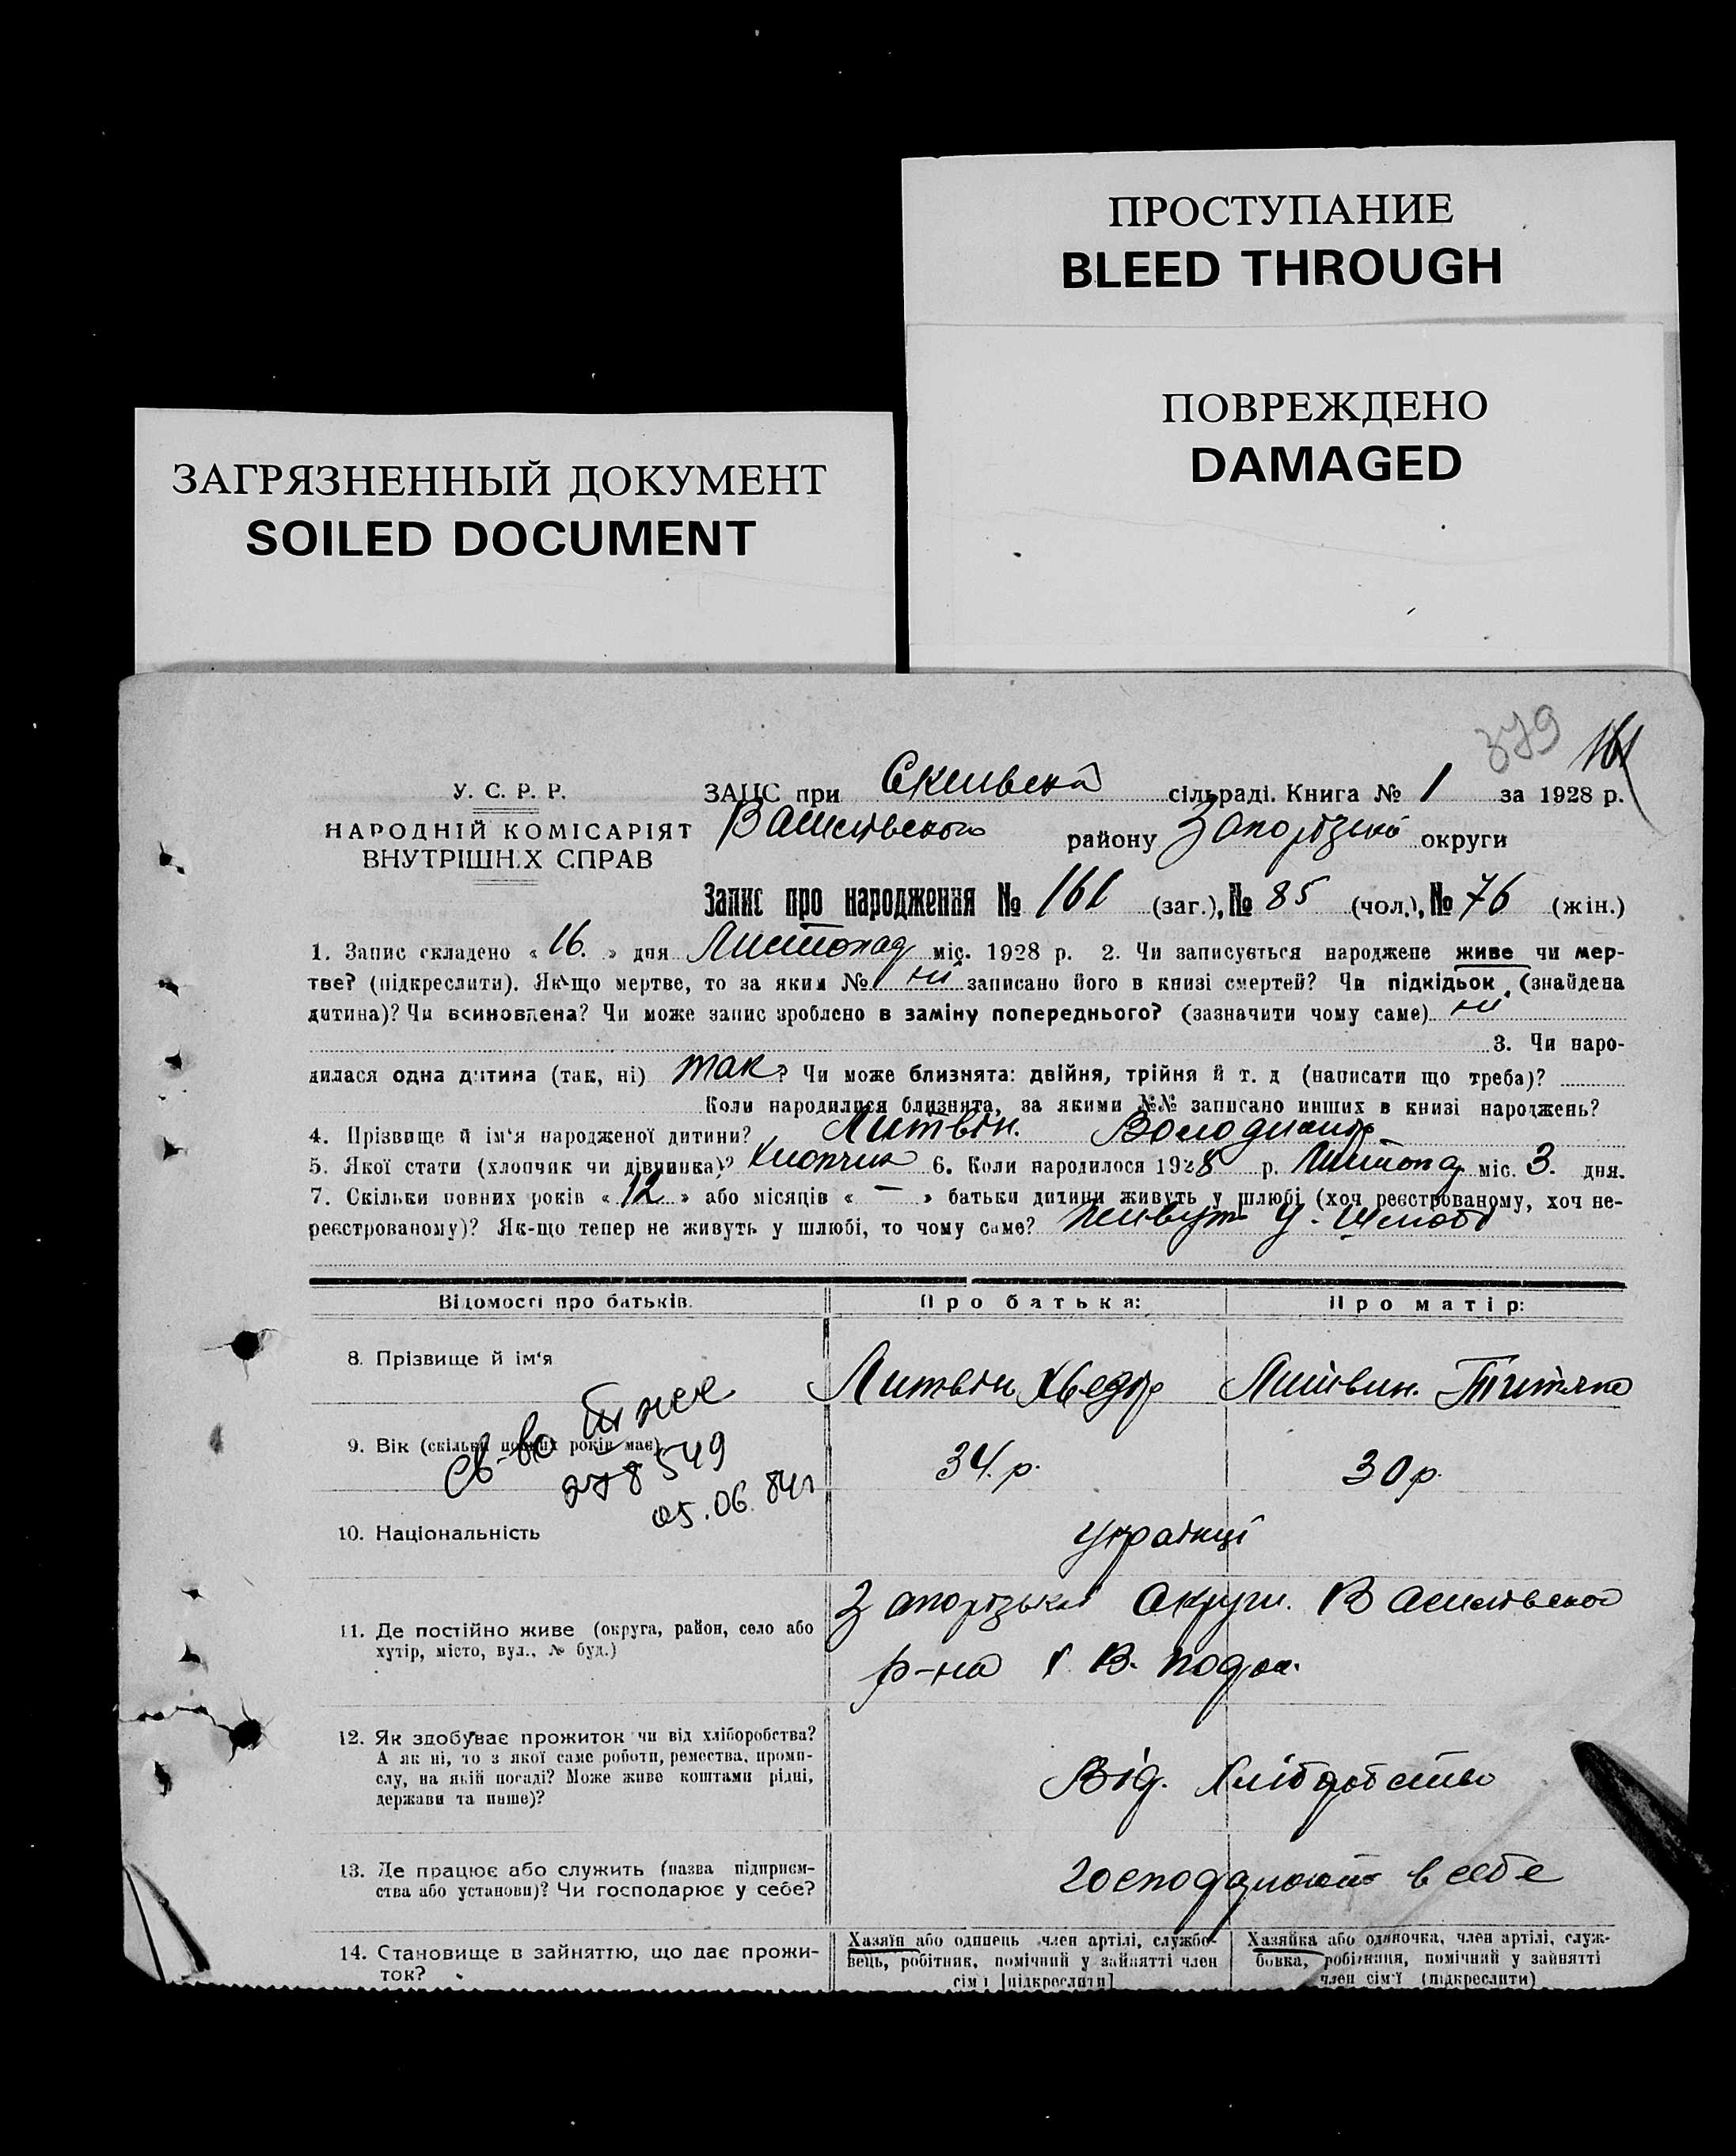 ПРОСТУПАНИЕ
BLEED THROUGH
ПОВРЕЖДЕНО
DAMAGED
ЗАГРЯЗНЕННЫЙ ДОКУМЕНТ
SOILED DOCUMENT
379 161
У. С. Р. Р.
НАРОДНІЙ КОМІСАРІЯТ
ВНУТРІШНІХ СПРАВ
ЗАЦС при Скельська сільраді. Книга № 1 за 1928 р.
Василівського району Запорізької округи
Запис про народження № 161 (заг.), № 85 (чол.), № 76 (жін.)
1. Запис складено « 16. » дня Листопад міс. 1928 р. 2. Чи записується народжене живе чи мер-
тве? (підкреслити). Як-що мертве, то за яким № ні записано його в книзі смертей? Чи підкідьок (знайдена
дитина)? Чи всиновлена? Чи може запис зроблено в заміну попереднього? (зазначити чому саме) ні
3. Чи наро-
дилася одна дитина (так, ні) так? Чи може близнята: двійня, трійня й т. д (написати що треба)?
Коли народилися близнята, за якими №№ записано инших в книзі народжень?
4. Прізвище й ім'я народженої дитини? Литвін. Володимір
5. Якої стати (хлопчик чи дівчинка)? Хлопчик 6. Коли народилося 1928 р. Листопад міс. 3. дня.
7. Скільки повних років « 12 » або місяців « – » батьки дитини живуть у шлюбі (хоч реєстрованому, хоч не-
реєстрованому)? Як-що тепер не живуть у шлюбі, то чому саме? Живуть у шлюбі
Відомості про батьків.
Про батька:
Про матір:
8. Прізвище й ім'я
Литвін Хведір
Литвин. Титяна
9. Вік (скільки повних років має)
34. р.
30 р.
св-во
278549
05.06.84г
10. Національність
Українці
11. Де постійно живе (округа, район, село або
хутір, місто, вул., № буд.)
Запорізької Округи. Василівсько
р-на В. Подов.
12. Як здобуває прожиток чи від хліборобства?
А як ні, то з якої саме роботи, ремества, проми-
слу, на якій посаді? Може живе коштами рідні,
держави та инше)?
Від. Хліборобства
13. Де працює або служить (назва підприєм-
ства або установи)? Чи господарює у себе?
Господарюють в себе
14. Становище в зайняттю, що дає прожи-
ток?
Хазяїн або одинець член артілі, службо-
вець, робітник, помічний у зайнятті член
сім'ї [підкреслити]
Хазяйка або одиночка, член артілі, служ-
бовка, робітниця, помічний у зайнятті
член сім'ї (підкреслити)